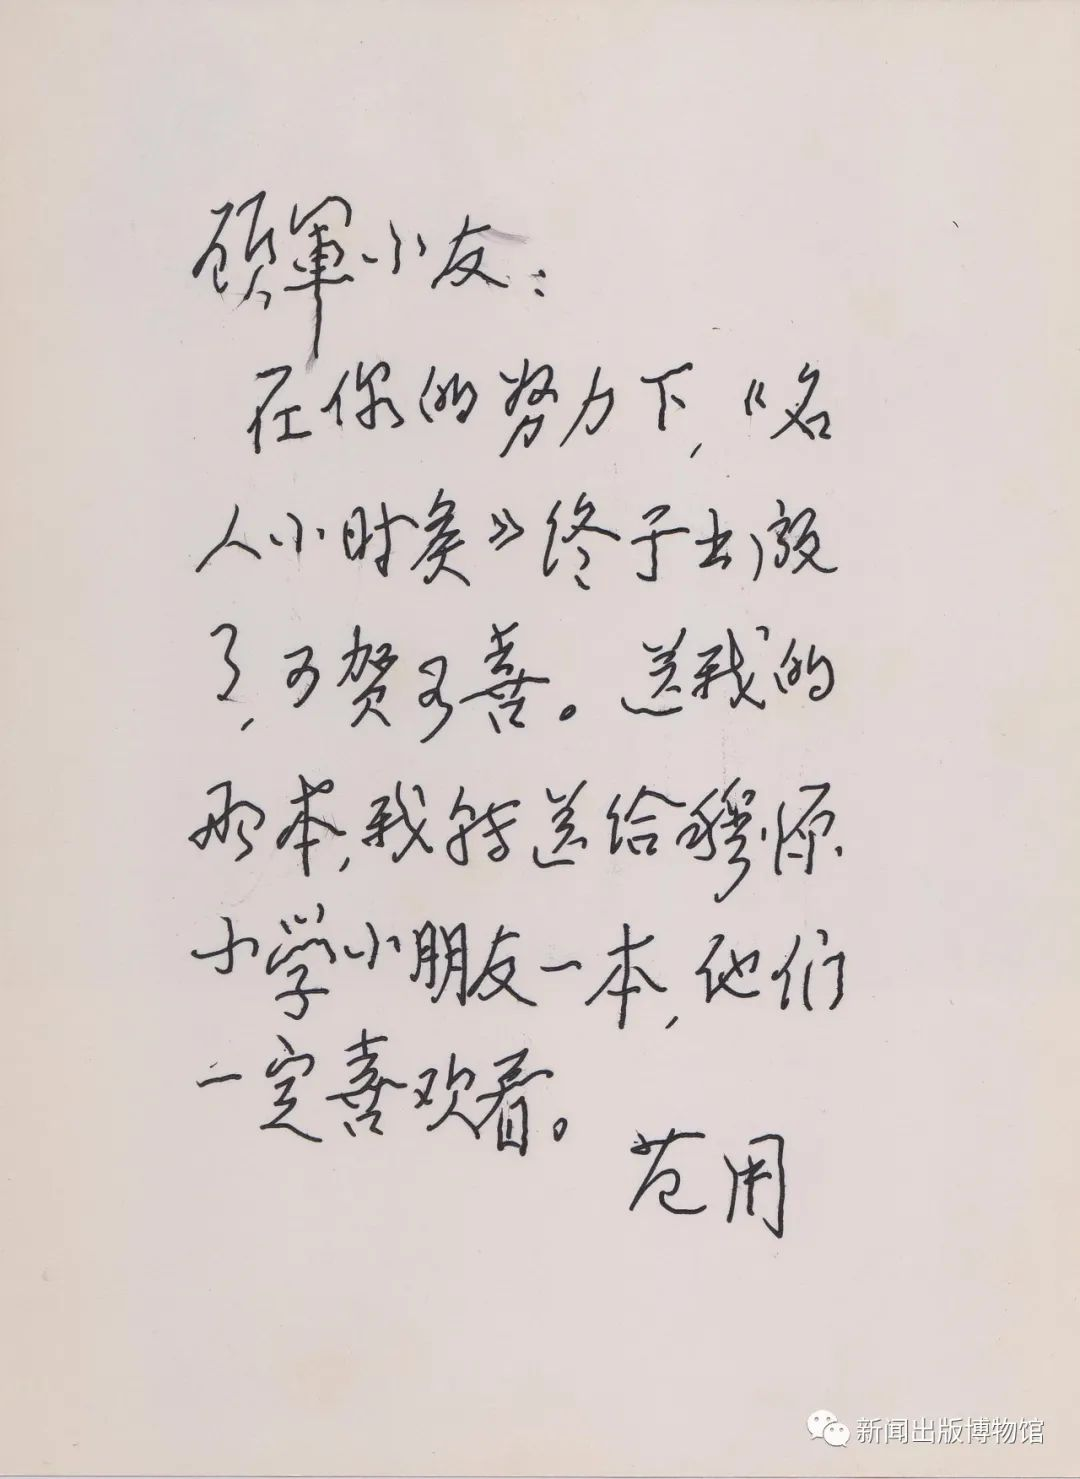 顾軍小友：
在你的努力下，《名
人小时候》终于出版
了，可贺可喜。送我的
那本，我转送给穆源
小学小朋友一本，他们
一定喜欢看。
范用
新闻出版博物馆